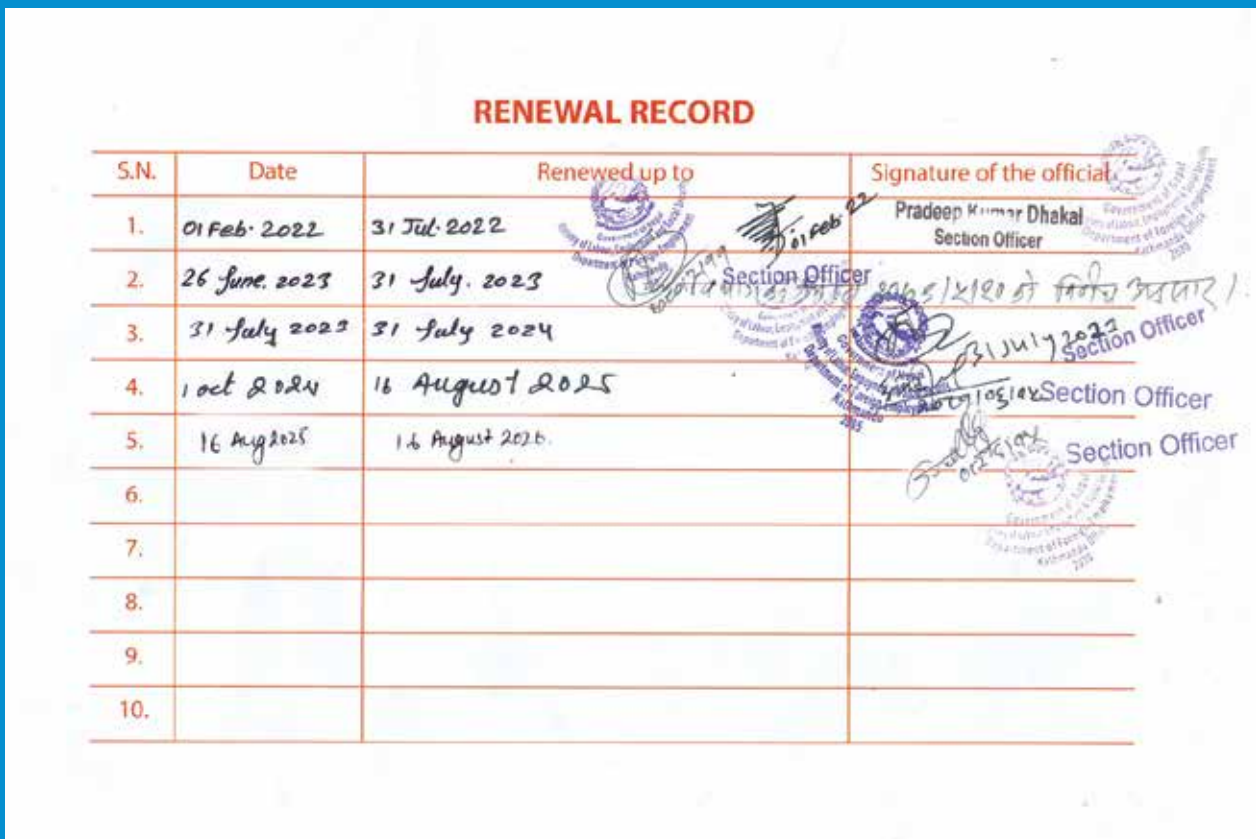 RENEWAL RECORD
S.N. Date Renewed up to Signature of the official
1. 01 Feb. 2022 31 Jul. 2022 01 Feb-22 Pradeep Kumar Dhakal
Section Officer
2. 26 June. 2023 31 July. 2023 Section Officer
3. 31 July 2023 31 July 2024 31 July 2023 Section Officer
4. 1 oct 2024 16 August 2025 Section Officer
5. 16 Aug 2025 16 August 2026. Section Officer
6.
7.
8.
9.
10.
Government of Nepal
Department of Foreign Employment
Kathmandu